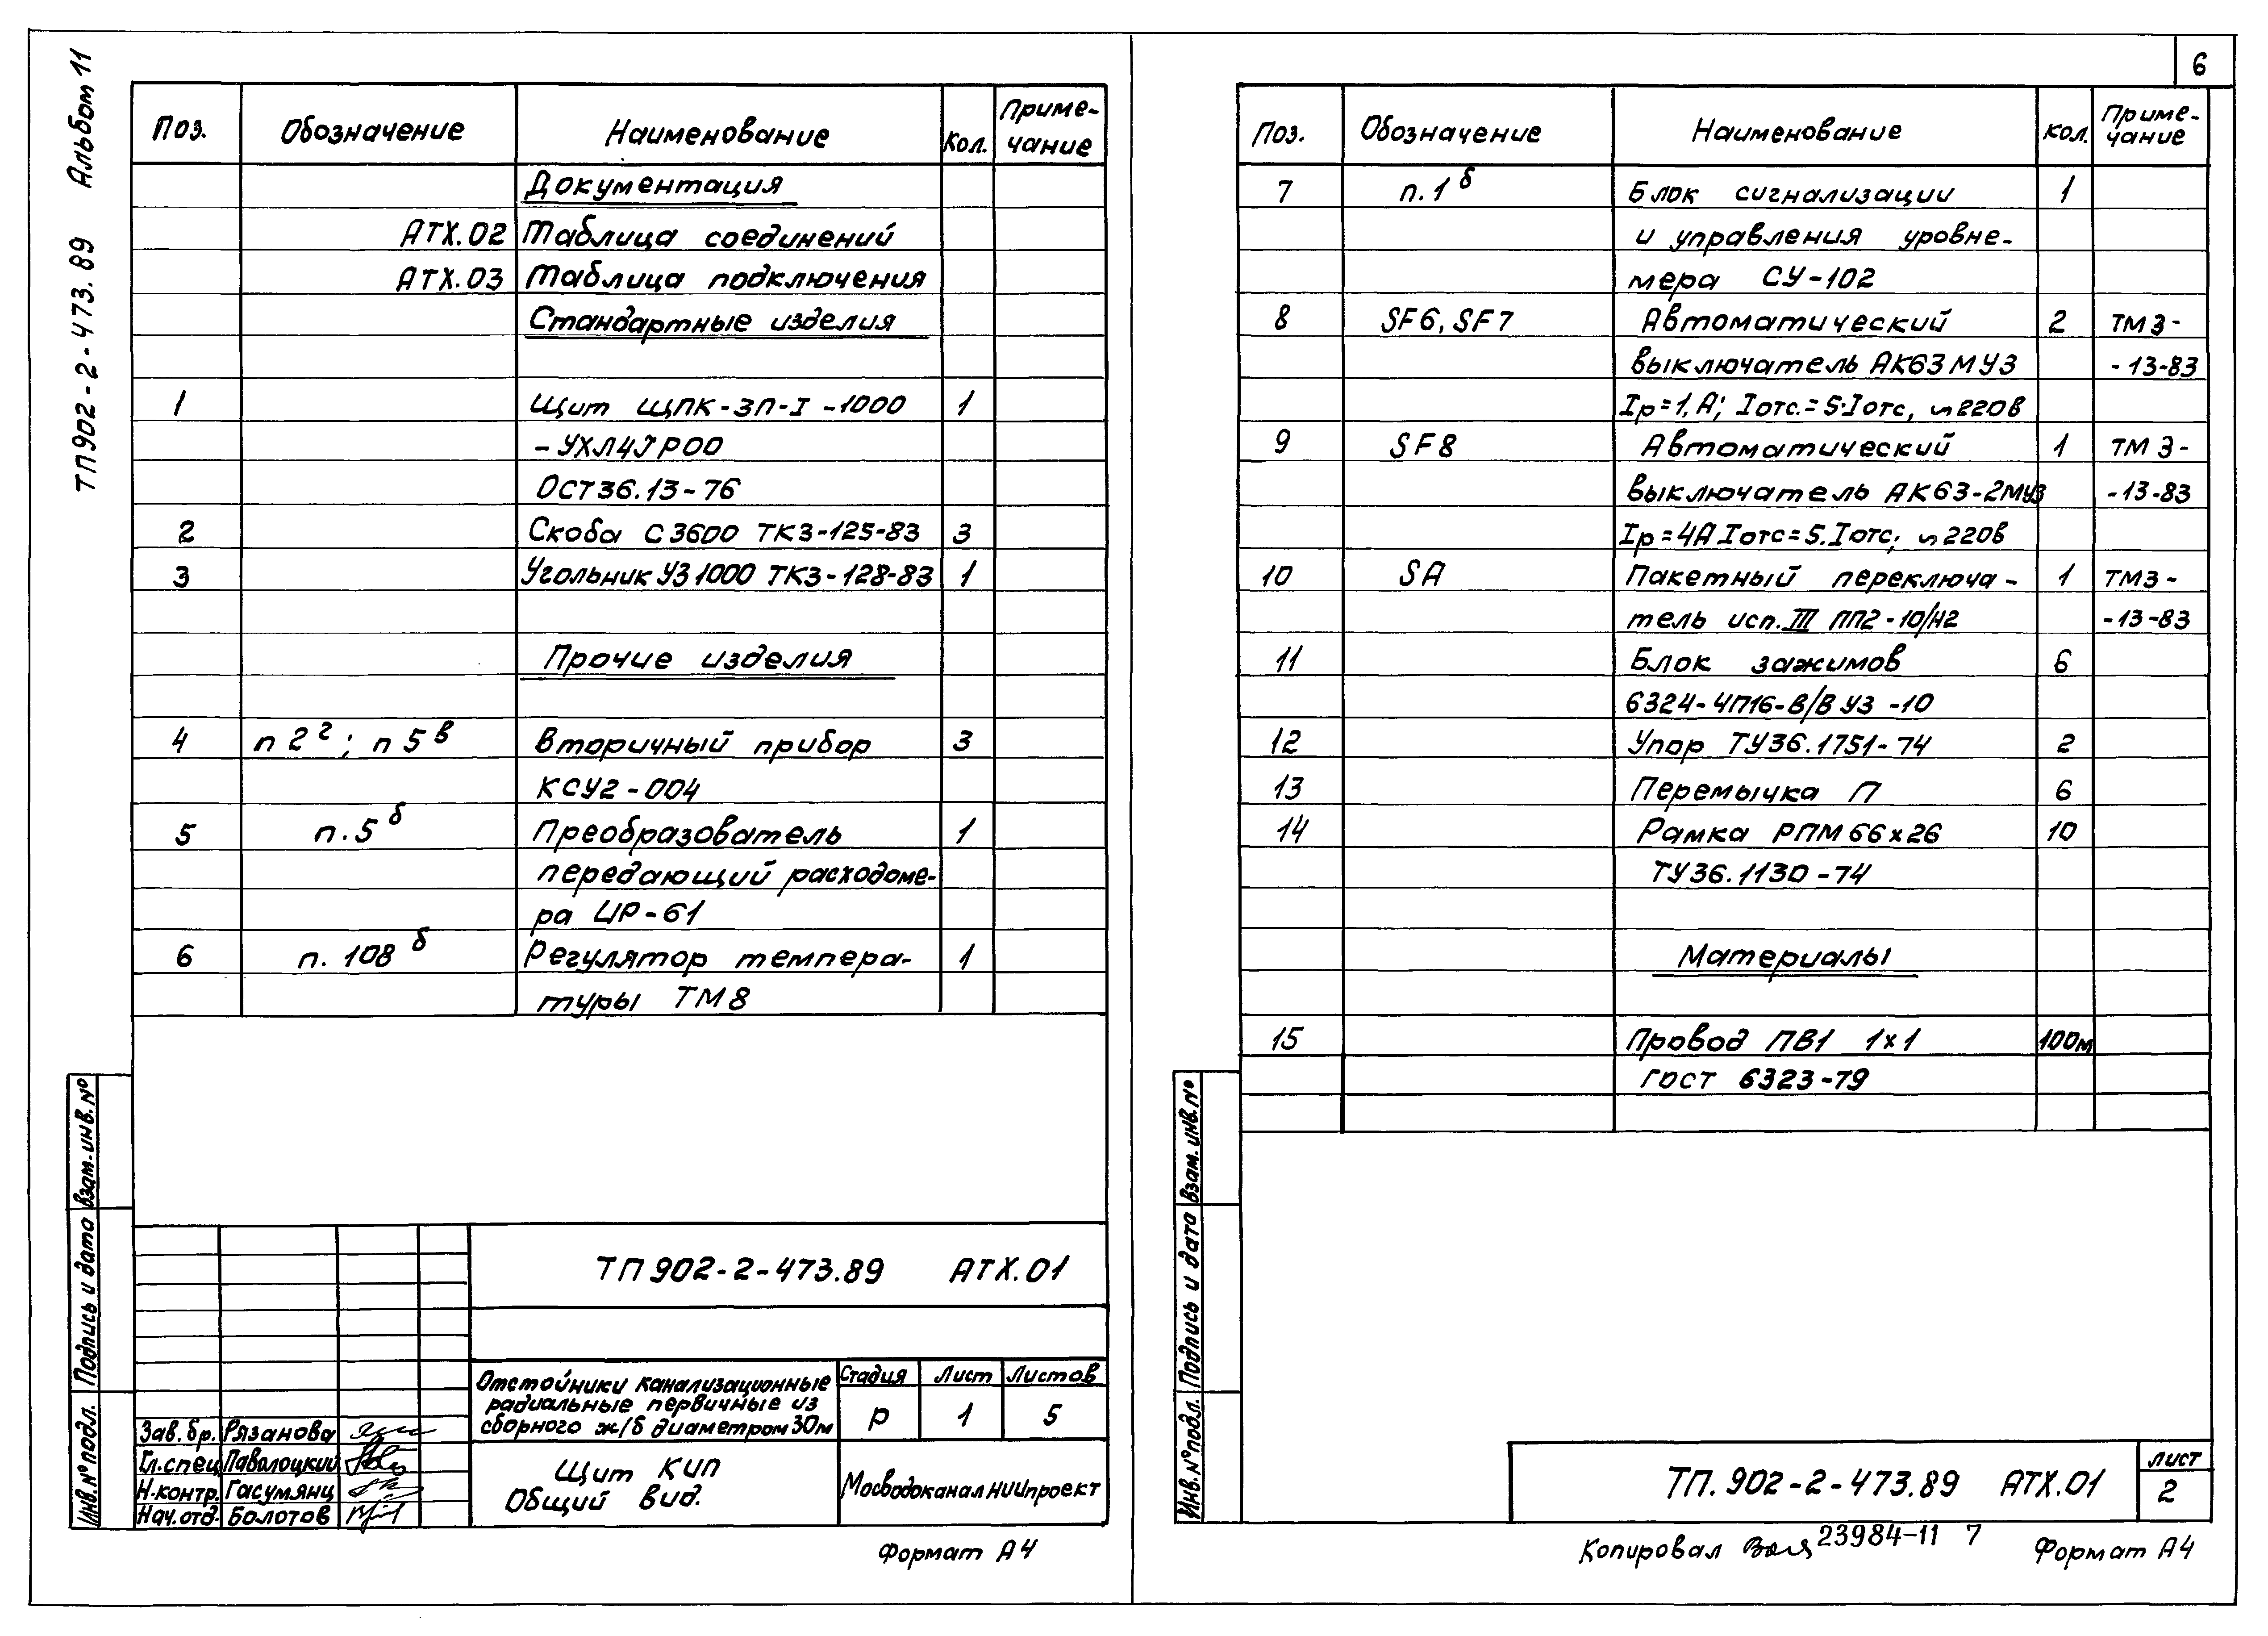 Альбом 11
ТП902-2-473.89
Поз. Обозначение Наименование Кол. Приме-
чание
Документация
АТХ.02 Таблица соединений
АТХ.03 Таблица подключения
Стандартные изделия
1 Щит ЩПК-ЗП-I-1000 1
-УХЛ4JР00
ОСТ36.13-76
2 Скоба С3600 ТК3-125-83 3
3 Угольник УЗ1000 ТК3-128-83 1
Прочие изделия
4 п 2г; п 5в Вторичный прибор 3
КСУ2-004
5 п.5б Преобразователь 1
передающий расходоме-
ра ИР-61
6 п. 108б Регулятор темпера- 1
туры ТМ8
Взам.инв.№
Подпись и дата
Инв.№подл.
ТП902-2-473.89 АТХ.01
Отстойники канализационные
радиальные первичные из
сборного ж/б диаметром 30м
Стадия Лист Листов
Р 1 5
Зав.бр. Рязанова
Гл.спец Павалоцкий
Н.контр. Гасумянц
Нач.отд. Болотов
Щит КИП
Общий вид.
МосводоканалНИИпроект
Формат А4
6
Поз. Обозначение Наименование Кол. Приме-
чание
7 п.1б Блок сигнализации 1
и управления уровне-
мера СУ-102
8 SF6, SF7 Автоматический 2 ТМ3-
выключатель АК63МУ3 -13-83
Iр=1,А; Iотс.=5·Iотс, ~220в
9 SF8 Автоматический 1 ТМ3-
выключатель АК63-2МУ3 -13-83
Iр=4А Iотс=5.Iотс; ~220в
10 SA Пакетный переключа- 1 ТМ3-
тель исп.III ПП2-10/Н2 -13-83
11 Блок зажимов 6
БЗ24-4П16-В/ВУЗ-10
12 Упор ТУ36.1751-74 2
13 Перемычка П 6
14 Рамка РПМ 66х26 10
ТУ36.1130-74
Материалы
15 Провод ПВ1 1х1 100м
ГОСТ 6323-79
Взам.инв.№
Подпись и дата
Инв.№подл.
ТП.902-2-473.89 АТХ.01
Лист
2
Копировал 23984-11 7 Формат А4